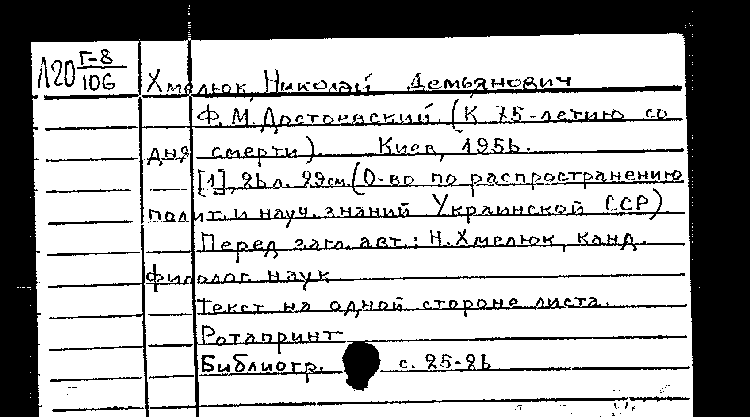 Л20 Г-8/106
Хмелюк, Николай Демьянович
Ф. М. Достоевский. (К 75-летию со
дня смерти). Киев, 1956.
[1], 26 л. 29 см. (О-во по распространению
полит. и науч. знаний Украинской ССР).
Перед загл. авт.: Н. Хмелюк, канд.
филолог. наук
Текст на одной стороне листа.
Ротапринт
Библиогр. с. 25-26